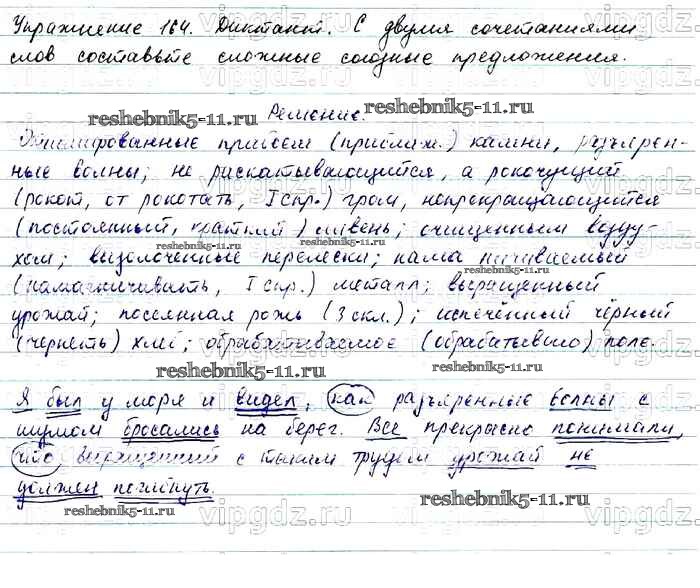 Упражнение 164. Диктант. С двумя сочетаниями
слов составьте сложные союзные предложения.
Решение.
reshebnik5-11.ru reshebnik5-11.ru
Отшлифованные прибоем (приближ.) камни, разъярен-
ные волны; не раскатывающийся, а рокочущий
(рокот, от рокотать, I спр.) гром, непрекращающийся
(постоянный, краткий) ливень; очищенным возду-
reshebnik5-11.ru reshebnik5-11.ru
хом; вызолоченные перелески; нама ничиваемый
(намагничивать, I спр.) металл; выращенный
урожай; посеянная рожь (3 скл.); испечённый чёрный
(чернеть) хлеб; обрабатываемое (обрабатывало) поле.
reshebnik5-11.ru reshebnik5-11.ru
Я был у моря и видел, как разъяренные волны с
шумом бросались на берег. Все прекрасно понимали,
что выращенный с таким трудом урожай не
должен погибнуть.
reshebnik5-11.ru reshebnik5-11.ru
vipgdz.ru